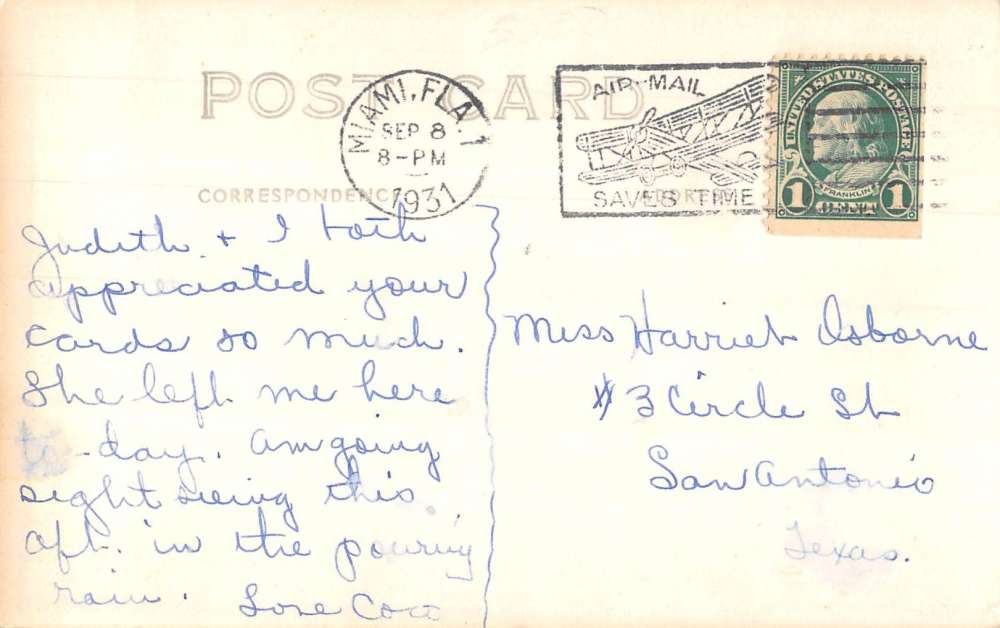 POST CARD
MIAMI, FLA. 1
SEP 8
8-PM
1931
AIR-MAIL
SAVES TIME
UNITED STATES POSTAGE
FRANKLIN
1 1
CORRESPONDENCE
Judith + I both
appreciated your
cards so much.
She left me here
to-day. Am going
sight seeing this
aft. in the pouring
rain.
Love
Miss Harriet Osborne
#3 Circle St
San Antonio
Texas.